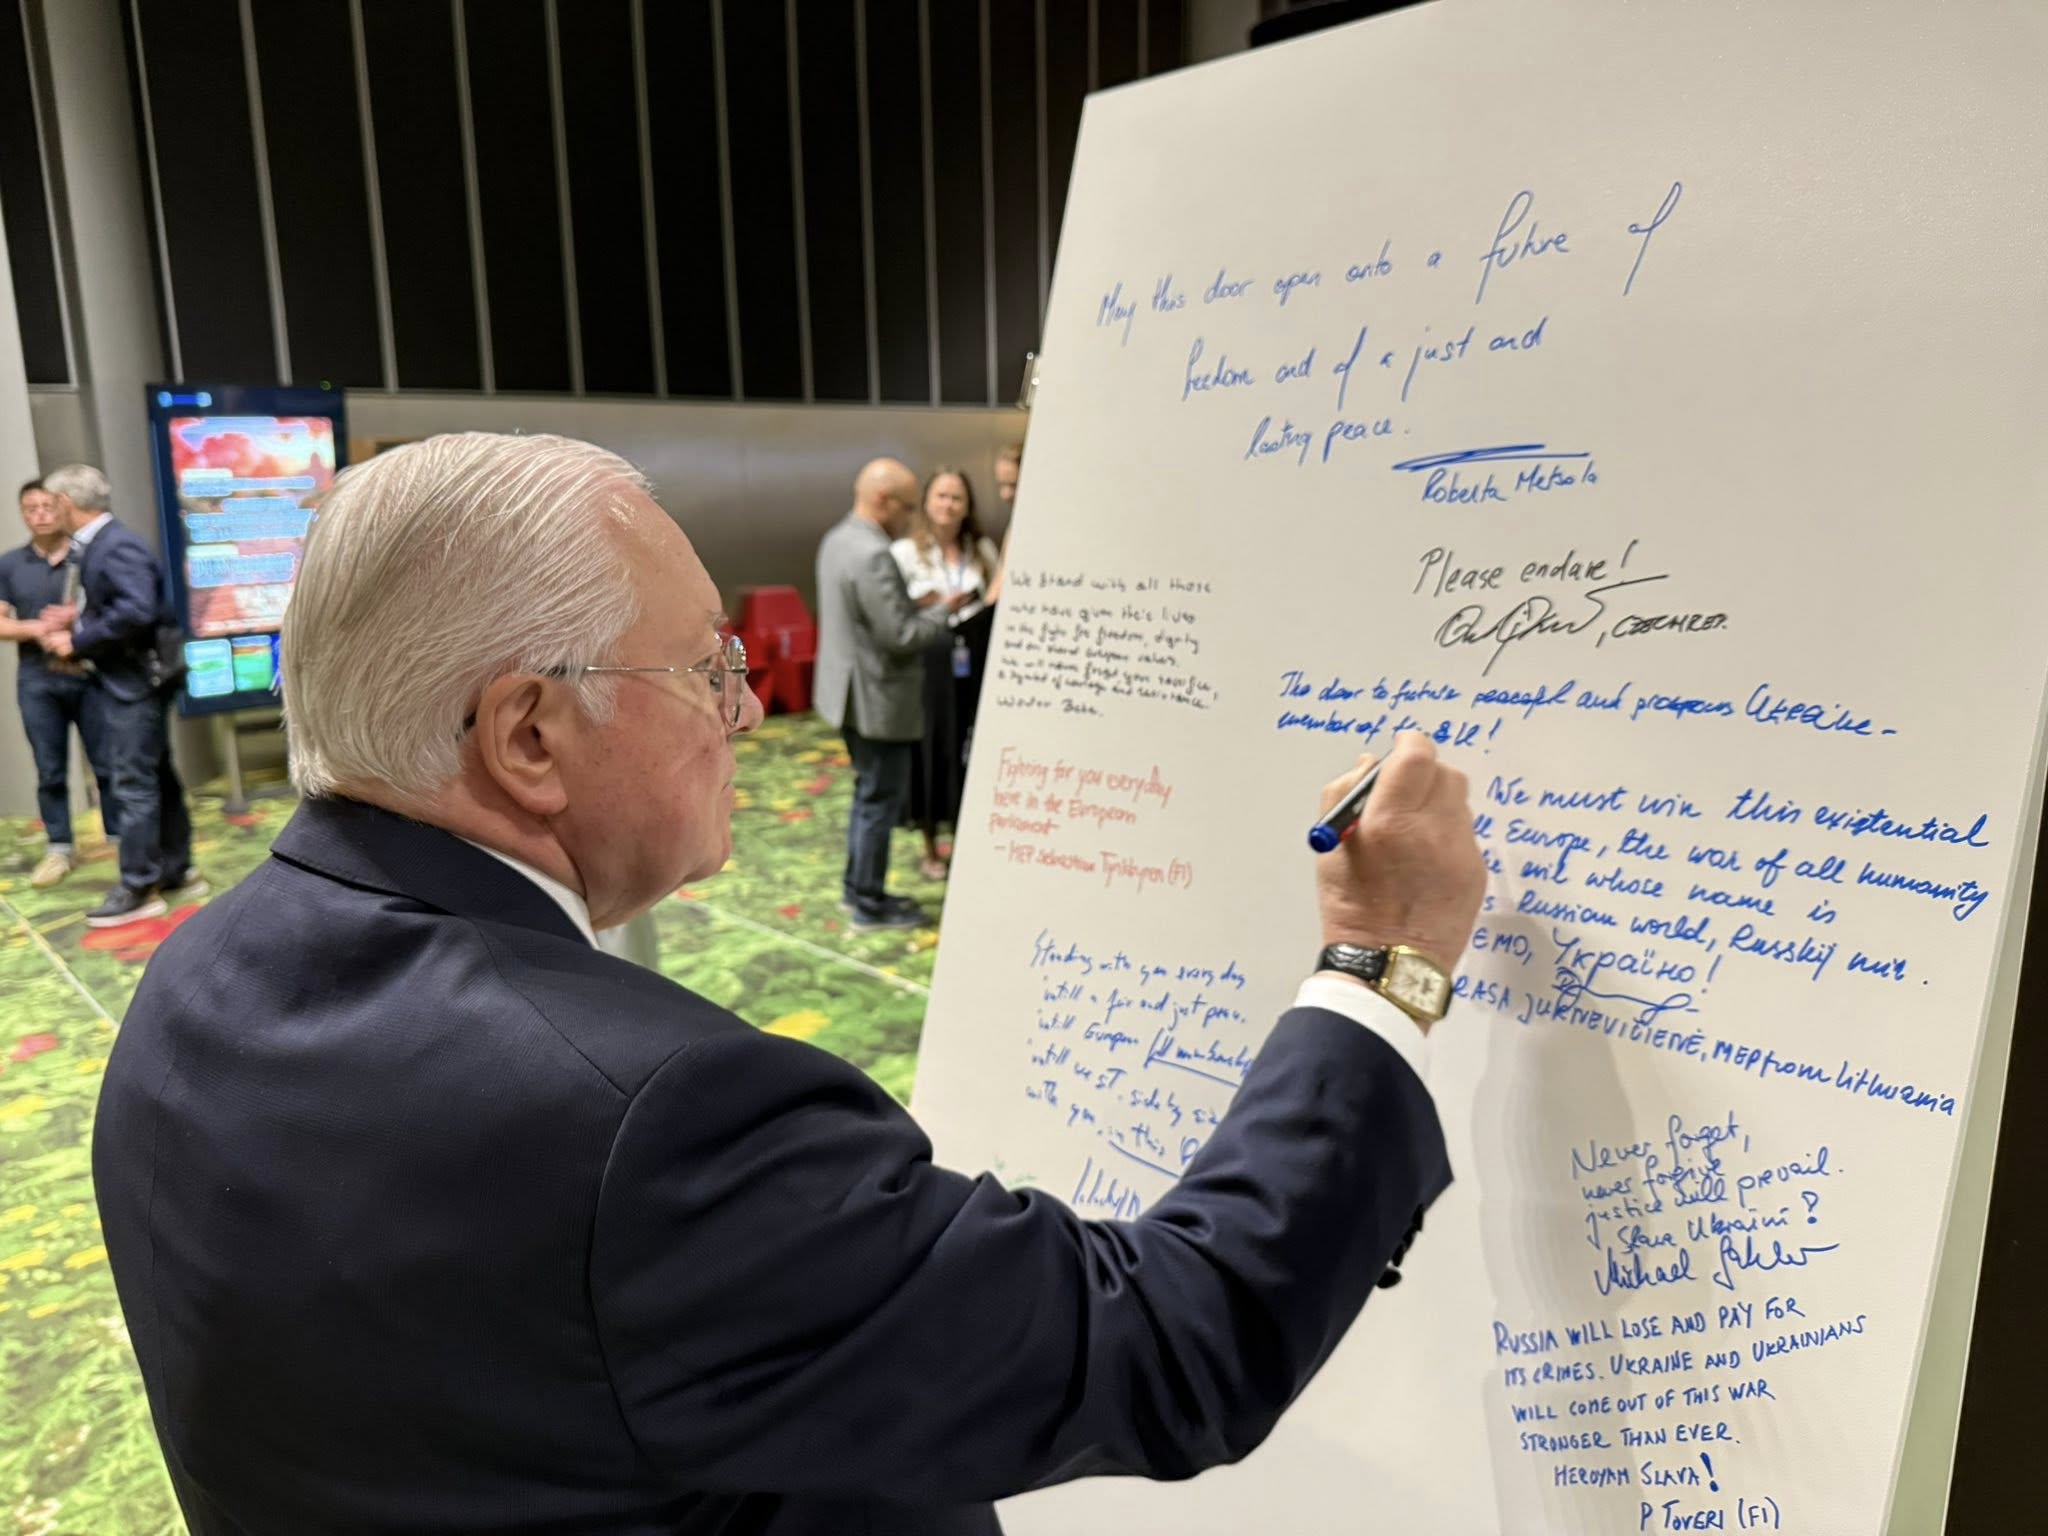 May this door open onto a future of
freedom and of a just and
lasting peace.
Roberta Metsola
Please endure!
, CZECH REP.
The door to future peaceful and prosperous Ukraine -
member of the
We stand with all those
who have given their lives
in the fight for freedom, dignity
and our shared European values.
We will never forget your sacrifice,
a symbol of courage and resistance.
Fighting for you everyday
here in the European
parliament
- MEP Sebastian Tynkkynen (FI)
Standing with you every day
'untill a fair and just peace.
'untill European full membership
'untill we sit side by
with you, in this
We must win this existential
Europe, the war of all humanity
evil whose name is
Russian world, Russkij mir.
ЕМО, Україно!
RASA JUKNEVIČIENĖ, MEP from Lithuania
Never forget,
never forgive
justice will prevail.
Slava Ukraini!
Michael Gahler
RUSSIA WILL LOSE AND PAY FOR
ITS CRIMES. UKRAINE AND UKRAINIANS
WILL COME OUT OF THIS WAR
STRONGER THAN EVER.
HEROYAM SLAVA!
P TOVERI (FI)